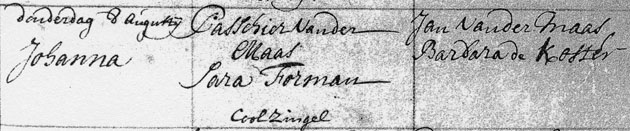 donderdag 8 Augusty
Johanna
Passchier Vander
Maas
Sara Forman
Coolzingel
Jan Vander Maas
Barbara de Koster